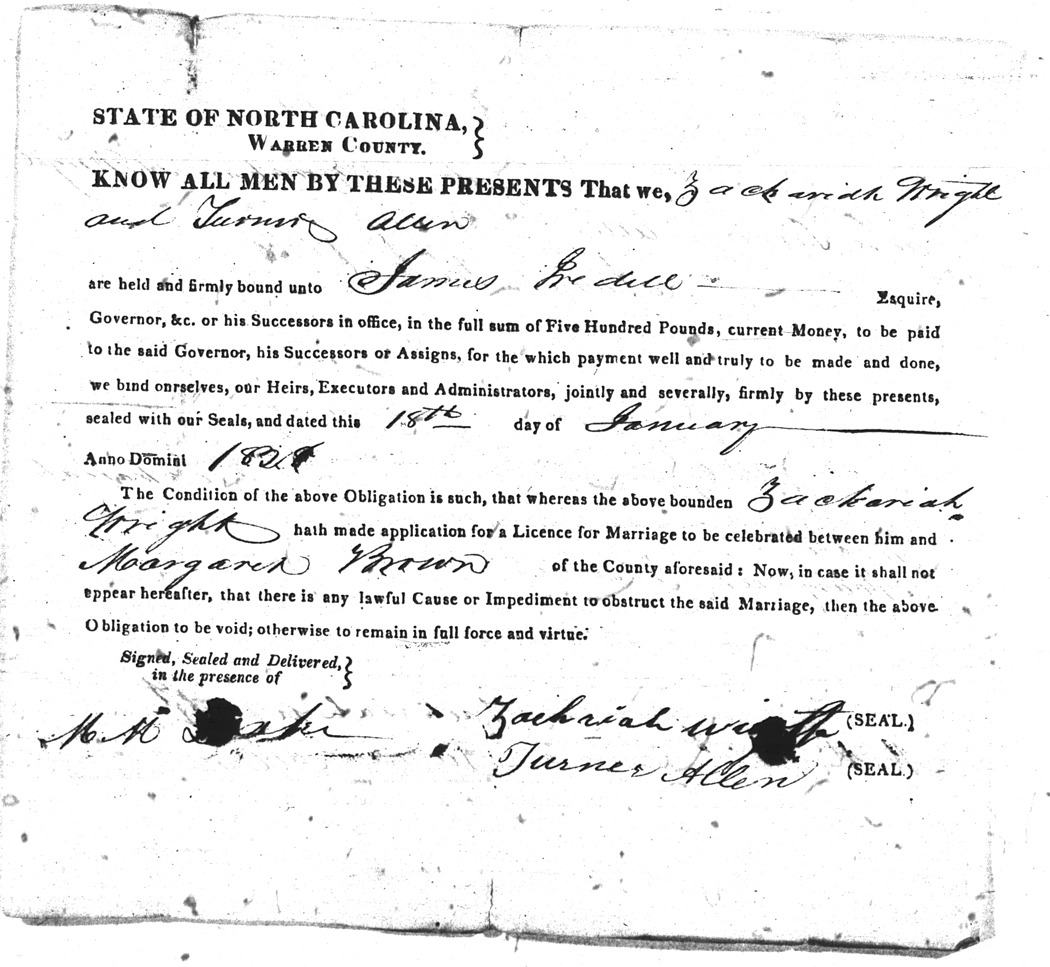 STATE OF NORTH CAROLINA,
WARREN COUNTY.
KNOW ALL MEN BY THESE PRESENTS That we, Zackariah Wright
and Turner Allen
are held and firmly bound unto James Iredell Esquire,
Governor, &c. or his Successors in office, in the full sum of Five Hundred Pounds, current Money, to be paid
to the said Governor, his Successors or Assigns, for the which payment well and truly to be made and done,
we bind onrselves, our Heirs, Executors and Administrators, jointly and severally, firmly by these presents,
sealed with our Seals, and dated this 18th day of January
Anno Domini
The Condition of the above Obligation is such, that whereas the above bounden Zackariah
Wright hath made application for a Licence for Marriage to be celebrated between him and
Margaret Brown of the County aforesaid: Now, in case it shall not
appear hereafter, that there is any lawful Cause or Impediment to obstruct the said Marriage, then the above
Obligation to be void; otherwise to remain in full force and virtue.
Signed, Sealed and Delivered,
in the presence of
M M Zachriah (SEAL.)
Turner Allen (SEAL.)